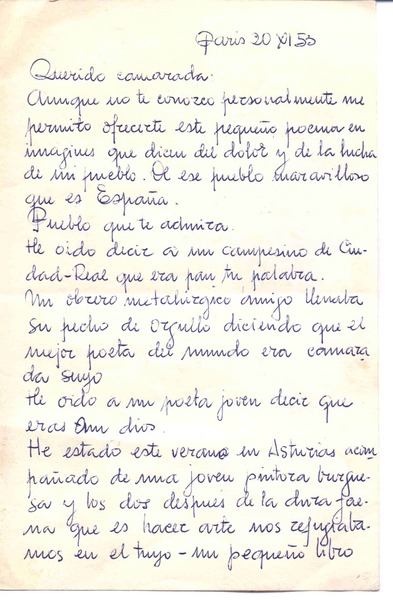 Paris 20 XI 53
Querido camarada.
Aunque no te conozco personalmente me
permito ofrecerte este pequeño poema en
imagines que dicen del dolor y de la lucha
de mi pueblo. De ese pueblo maravilloso
que es España.
Pueblo que te admira.
He oido decir a un campesino de Ciu-
dad-Real que era pan tu palabra.
Un obrero metalúrgico amigo llenaba
su pecho de orgullo diciendo que el
mejor poeta del mundo era camara
da suyo
He oido a un poeta joven decir que
eras un dios.
He estado este verano en Asturias acom-
pañado de una joven pintora burgue-
sa y los dos después de la dura fae-
na que es hacer arte nos refugiaba-
mos en el tuyo - un pequeño libro